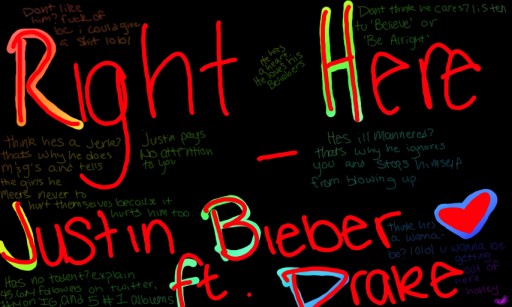 Dont like
him? fuck of
bc i could give
a shit lolol
Dont think he cares? listen
to 'Believe' or
'Be Alright'
He has
a heart
He loves his
Beliebers
Right Here
think hes a Jerk?
thats why he does
m'g's and tells
the girls he
meets never to
hurt themselves because it
hurts him too
Justin pays
No attention
to you
-
Hes ill mannered?
thats why he ignores
you and stops himself
from blowing up
Justin Bieber
ft. Drake
think hes
a wanna-
be? lolol u wanna be
getting
out of
here
honey
Has no talent? explain
45.6mil followers on twitter,
IG, and 5 #1 albums